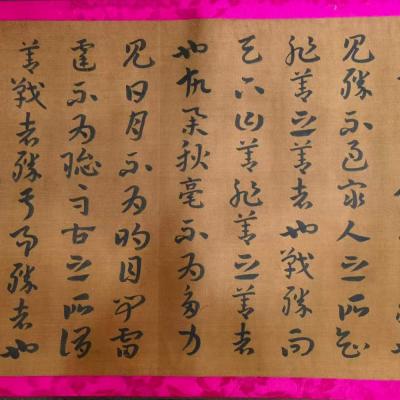 見勝不過衆人之所知
非善之善者也戰勝而
天下曰善非善之善者
也故舉秋毫不為多力
見日月不為明目聞雷
霆不為聰耳古之所謂
善戰者勝于易勝者也